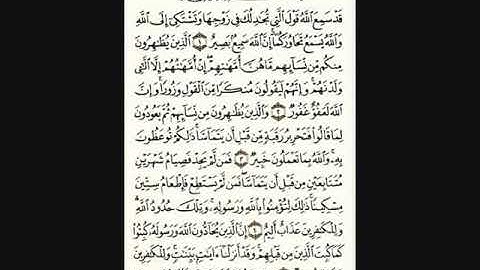 قَدْ سَمِعَ اللَّهُ قَوْلَ الَّتِي تُجَادِلُكَ فِي زَوْجِهَا وَتَشْتَكِي إِلَى اللَّهِ
وَاللَّهُ يَسْمَعُ تَحَاوُرَكُمَا إِنَّ اللَّهَ سَمِيعٌ بَصِيرٌ ١ الَّذِينَ يُظَاهِرُونَ
مِنكُم مِّن نِّسَائِهِم مَّا هُنَّ أُمَّهَاتِهِمْ إِنْ أُمَّهَاتُهُمْ إِلَّا الَّتِي
وَلَدْنَهُمْ وَإِنَّهُمْ لَيَقُولُونَ مُنكَرًا مِّنَ الْقَوْلِ وَزُورًا وَإِنَّ
اللَّهَ لَعَفُوٌّ غَفُورٌ ٢ وَالَّذِينَ يُظَاهِرُونَ مِن نِّسَائِهِمْ ثُمَّ يَعُودُونَ
لِمَا قَالُوا فَتَحْرِيرُ رَقَبَةٍ مِّن قَبْلِ أَن يَتَمَاسَّا ذَٰلِكُمْ تُوعَظُونَ
بِهِ وَاللَّهُ بِمَا تَعْمَلُونَ خَبِيرٌ ٣ فَمَن لَّمْ يَجِدْ فَصِيَامُ شَهْرَيْنِ
مُتَتَابِعَيْنِ مِن قَبْلِ أَن يَتَمَاسَّا فَمَن لَّمْ يَسْتَطِعْ فَإِطْعَامُ سِتِّينَ
مِسْكِينًا ذَٰلِكَ لِتُؤْمِنُوا بِاللَّهِ وَرَسُولِهِ وَتِلْكَ حُدُودُ اللَّهِ
وَلِلْكَافِرِينَ عَذَابٌ أَلِيمٌ ٤ إِنَّ الَّذِينَ يُحَادُّونَ اللَّهَ وَرَسُولَهُ كُبِتُوا
كَمَا كُبِتَ الَّذِينَ مِن قَبْلِهِمْ وَقَدْ أَنزَلْنَا آيَاتٍ بَيِّنَاتٍ وَلِلْكَافِرِينَ